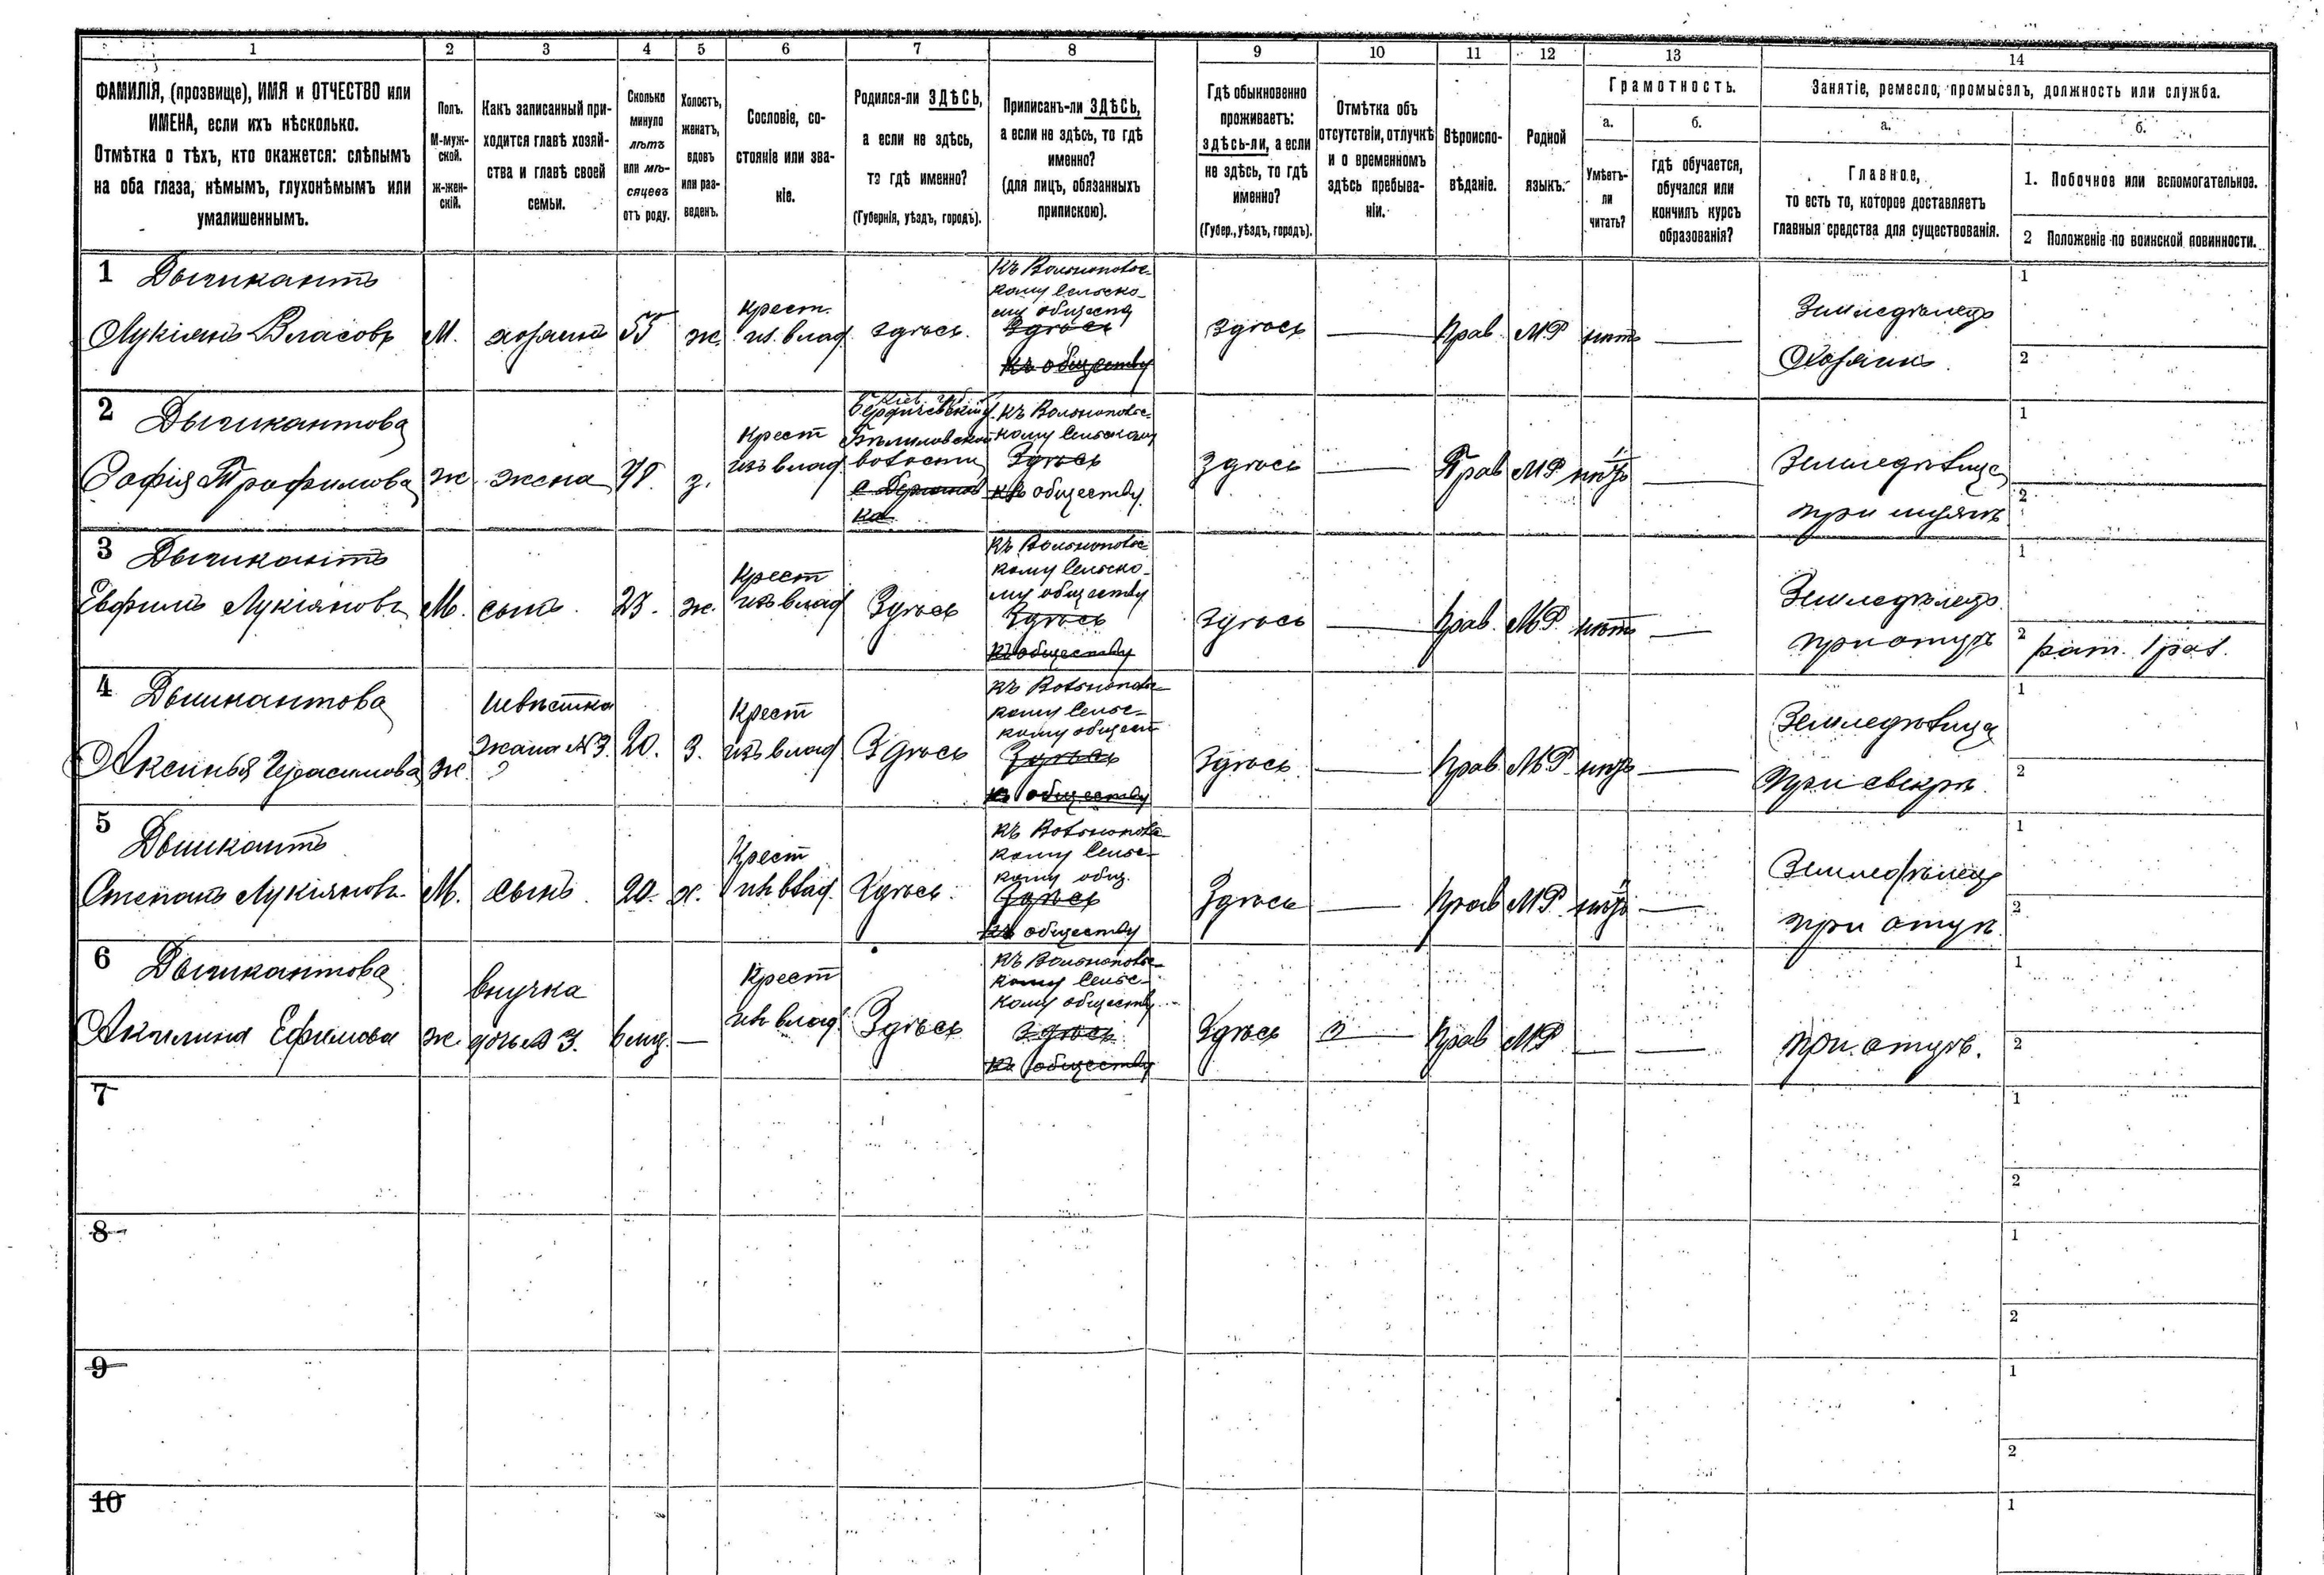 1 2 3 4 5 6 7 8 9 10 11 12 13 14
ФАМИЛІЯ, (прозвище), ИМЯ и ОТЧЕСТВО или
ИМЕНА, если ихъ нѣсколько.
Отмѣтка о тѣхъ, кто окажется: слѣпымъ
на оба глаза, нѣмымъ, глухонѣмымъ или
умалишеннымъ.
Полъ.
М-муж-
ской.
ж-жен-
скій.
Какъ записанный при-
ходится главѣ хозяй-
ства и главѣ своей
семьи.
Сколько
минуло
лѣтъ
или мѣ-
сяцевъ
отъ роду.
Холостъ,
женатъ,
вдовъ
или раз-
веденъ.
Сословіе, со-
стояніе или зва-
ніе.
Родился-ли ЗДѢСЬ,
а если не здѣсь,
то гдѣ именно?
(Губернія, уѣздъ, городъ).
Приписанъ-ли ЗДѢСЬ,
а если не здѣсь, то гдѣ
именно?
(для лицъ, обязанныхъ
припискою).
Гдѣ обыкновенно
проживаетъ:
здѣсь-ли, а если
не здѣсь, то гдѣ
именно?
(Губер., уѣздъ, городъ).
Отмѣтка объ
отсутствіи, отлучкѣ
и о временномъ
здѣсь пребыва-
ніи.
Вѣроиспо-
вѣданіе.
Родной
языкъ.
Грамотность.
а.
Умѣетъ-
ли
читать?
б.
гдѣ обучается,
обучался или
кончилъ курсъ
образованія?
Занятіе, ремесло, промыселъ, должность или служба.
а.
Главное,
то есть то, которое доставляетъ
главныя средства для существованія.
б.
1. Побочное или вспомогательное.
2 Положеніе по воинской повинности.
1 Дышкантъ
Лукіянъ Власовъ
М.
хозяинъ
55
ж.
Крест.
из. влад.
Здѣсь.
Здѣсь
къ обществу
Здѣсь
Прав.
М.Р.
нѣтъ
Земледѣлецъ
Хозяинъ
1
2
2 Дышкантова
Софія Трофимова
ж
жена
48
з.
Крест
изъ влад
Бердичевскій у.
волости
Здѣсь
къ обществу
Здѣсь
Прав
М.Р.
нѣтъ
Земледѣлица
при мужѣ
1
2
3 Дышкантъ
Евфимъ Лукіяновъ
М.
сынъ.
23.
ж.
Крест
изъ влад
Здѣсь
му обществу
Здѣсь
къ обществу
Здѣсь
Прав.
М.Р.
нѣтъ
Земледѣлецъ
при отцѣ
1
2 рат. 1 раз.
4 Дышкантова
Аксинья Герасимова
ж.
Невѣстка
Жена №3.
20.
З.
Крест
изъ влад
Здѣсь
Здѣсь
къ обществу
Здѣсь
Прав
М.Р.
нѣтъ
Земледѣлица
При свекрѣ.
1
2
5 Дышкантъ
Степанъ Лукіяновъ
М.
сынъ
20.
х.
Крест
изъ влад.
Здѣсь
кому общ.
Здѣсь
къ обществу
Здѣсь
Прав
М.Р.
нѣтъ
Земледѣлецъ
при отцѣ.
1
2
6 Дышкантова
Акилина Ефимова
ж.
внучка
дочь № 3.
6 мц.
Крест
изъ влад.
Здѣсь
кому обществу
Здѣсь
къ обществу
Здѣсь
Прав
М.Р.
при отцѣ.
1
2
7
1
2
8
1
2
9
1
2
10
1